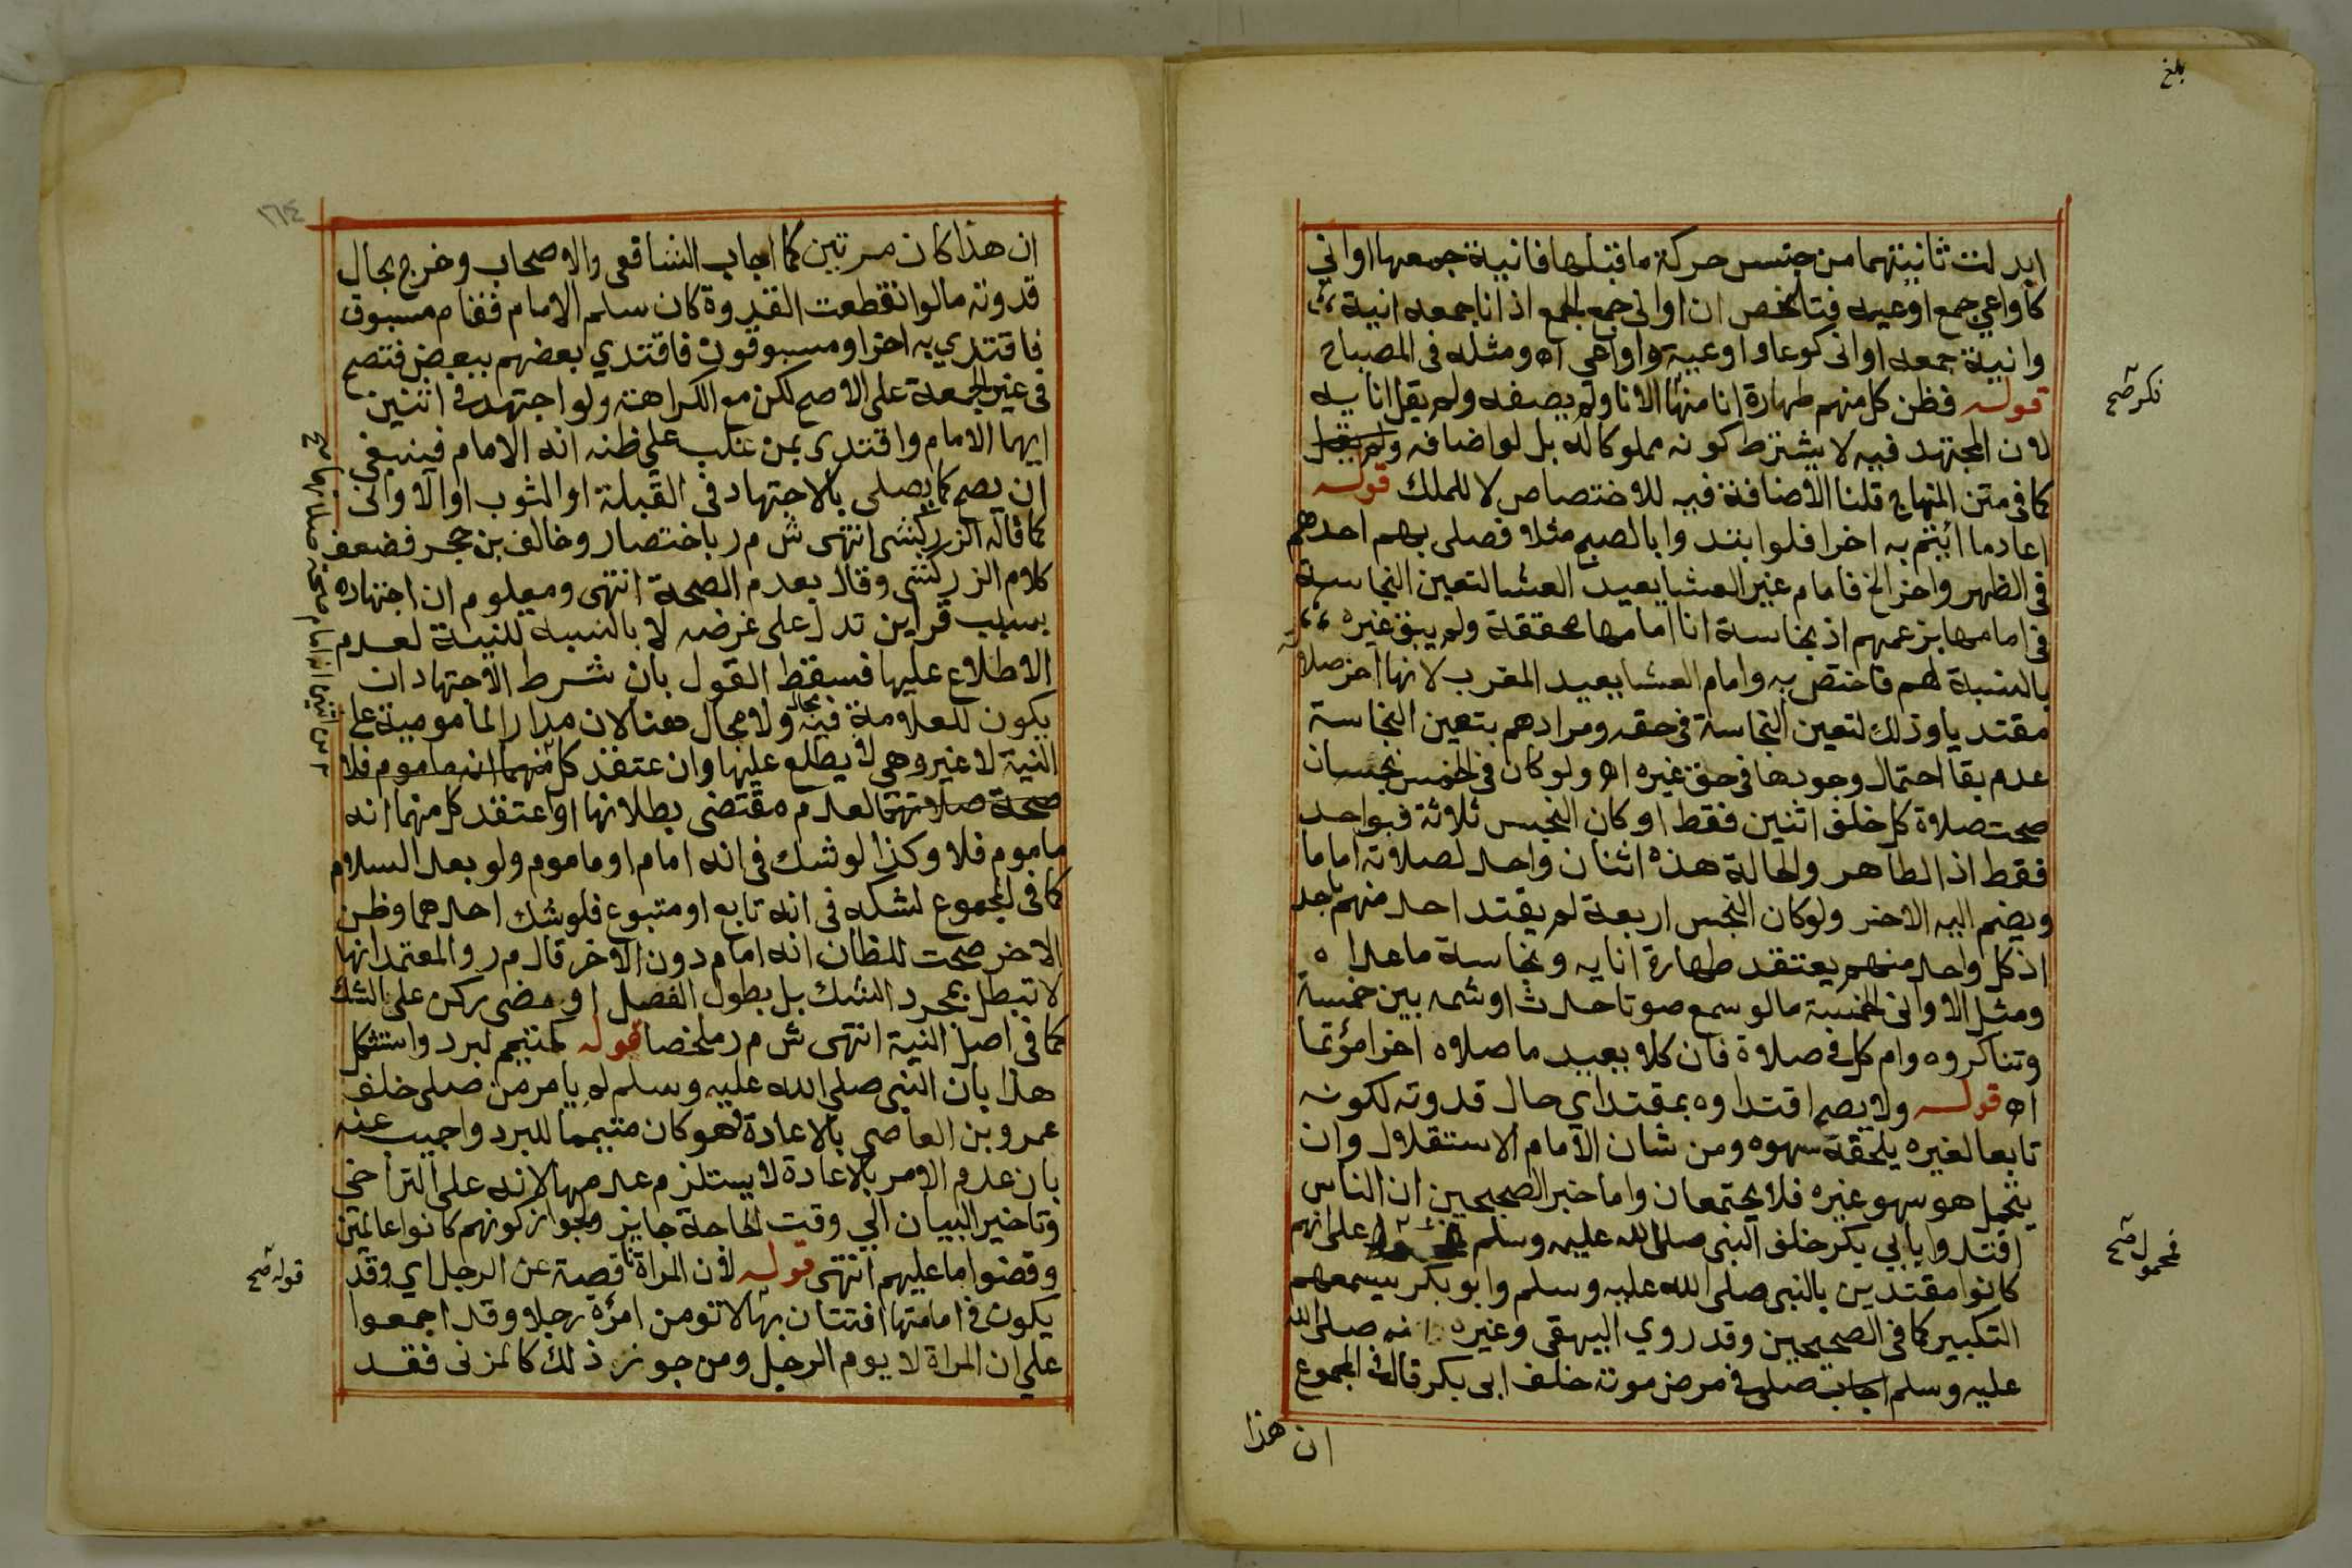 بلغ
ابدلت ثانيتهما من جنس حركة ما قبلها فانية جمعها اواني
كاواعي جمع اوعيه فتلخص ان اواني جمع الجمع اذ انا جمعه انية
وانية جمعه اواني كوعا واوعية واواعي اه ومثله في المصباح
قوله فظن كل منهم طهارة انا منها الانا ولم يضفه ولم يقل انايه
نكر صح
لان المجتهد فيه لا يشترط كونه مملوكا له بل لو اضافه ولم يقل
كما في متن المنهاج قلنا الاضافة فيه للاختصاص لا للملك قوله
اعاد ما ائتم به اخرا فلو ابتدوا بالصبح مثلا فصلى بهم احدهم
في الظهر واخر الخ فامام غير العشا يعيد العشا لتعين النجاسة
في امامها بزعمهم اذ نجاسة انا امامها محققة ولم يبق غيره
بالنسبة لهم فاختص به وامام العشا يعيد المغرب لانها اخر صلاة
مقتديا وذلك لتعين النجاسة في حقه ومرادهم بتعين النجاسة
عدم بقا احتمال وجودها في حق غيره اه ولو كان في الخمس نجسان
صحت صلاة كل خلف اثنين فقط او كان النجس ثلاثة فبواحد
فقط اذ الطاهر والحالة هذه اثنان واحد لصلاته اماما
ويضم اليه الاخر ولو كان النجس اربعة لم يقتد احد منهم باحد
اذ كل واحد منهم يعتقد طهارة انايه ونجاسة ما عداه
ومثل الاواني الخمسة ما لو سمع صوتا حدث او شمه بين خمسة
وتناكروه وام كل في صلاة فان كلا يعيد ما صلاه اخرا مؤتما
اه قوله ولا يصح اقتداوه بمقتد اي حال قدوته لكونه
تابعا لغيره يلحقه سهوه ومن شان الامام الاستقلال وان
يتحمل هو سهو غيره فلا يجتمعان واما خبر الصحيحين ان الناس
اقتدوا بابي بكر خلف النبي صلى الله عليه وسلم على انهم
فمحمول صح
كانوا مقتدين بالنبي صلى الله عليه وسلم وابو بكر يسمعهم
التكبير كما في الصحيحين وقد روي البيهقي وغيره انه صلى الله
عليه وسلم اجاب صلى في مرض موته خلف ابي بكر قال في المجموع
ان هذا
١٦٤
ان هذا كان مرتين كما اجاب الشافعي والاصحاب وخرج بحال
قدوته ما لو انقطعت القدوة كان سلم الامام فقام مسبوق
فاقتدي به اخر او مسبوقون فاقتدي بعضهم ببعض فتصح
في غير الجمعة على الاصح لكن مع الكراهة ولو اجتهد في اثنين
ايهما الامام واقتدى بمن غلب على ظنه انه الامام فينبغي
ان يصح كما يصلي بالاجتهاد في القبلة او الثوب او الاواني
كما قاله الزركشي انتهى ش م ر باختصار وخالف بن حجر فضعف
كلام الزركشي وقال بعدم الصحة انتهى ومعلوم ان اجتهاده
بسبب قراين تدل على غرضه لا بالنسبة للنية لعدم
الاطلاع عليها فسقط القول بان شرط الاجتهاد ان
يكون للعلامة فيه مجال ولا مجال هنا لان مدار المامومية على
النية لا غير وهي لا يطلع عليها وان عتقد كل منهما انه ماموم فلا
صحة صلاتهما لعدم مقتضى بطلانها او اعتقد كل منهما انه
ماموم فلا وكذا لو شك في انه امام او ماموم ولو بعد السلام
كما في المجموع لشكه في انه تابع او متبوع فلو شك احدهما وظن
الاخر صحت للظان انه امام دون الاخر قال م ر والمعتمد انها
لا تبطل بمجرد الشك بل بطول الفصل او مضي ركن على الشك
كما في اصل النية انتهى ش م ر ملخصا قوله لمتيمم لبرد واستشكل
هذا بان النبي صلى الله عليه وسلم لم يامر من صلى خلف
عمرو بن العاصي بالاعادة فهو كان متيمما للبرد واجيب عنه
بان عدم الامر بالاعادة لا يستلزم عدمها لانه على التراخي
وتاخير البيان الي وقت الحاجة جايز ولجواز كونهم كانوا عالمين
وقضوا ما عليهم انتهى قوله لان المراة ناقصة عن الرجل اي وقد
قوله صح
يكون في امامتها افتتان بها لا تومن امرة رجلا وقد اجمعوا
علي ان المراة لا يوم الرجل ومن جوز ذلك كالمزني فقد